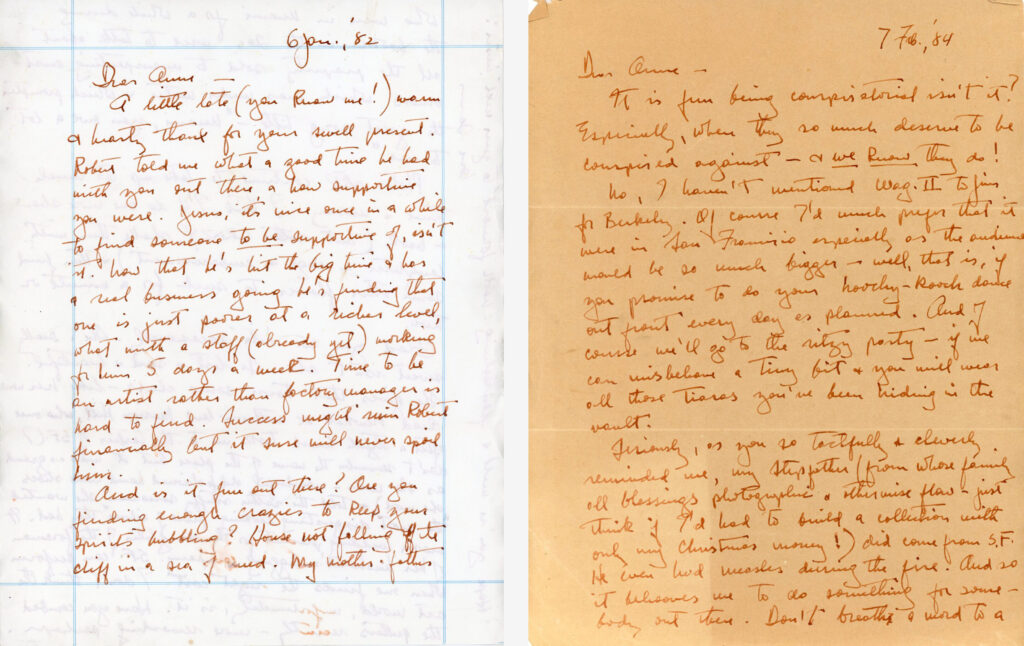 6 Jan., '82
Dear Anne —
A little late (you know me!) warm
& hearty thank for your swell present.
Robert told me what a good time he had
with you out there & how supportive
you were. Jesus, it's nice once in a while
to find someone to be supportive of, isn't
it. Now that he's hit the big time & has
a real business going he's finding that
one is just poorer at a richer level,
what with a staff (already yet) working
for him 5 days a week. Time to be
an artist rather than factory manager is
hard to find. Success might ruin Robert
financially but it sure will never spoil
him.
And is it fun out there? Are you
finding enough crazies to keep your
spirits bubbling? House not falling off the
cliff in a sea of mud. My mother & father
7 Feb., '84
Dear Anne —
It is fun being conspiratorial isn't it?
Especially, when they so much deserve to be
conspired against — & we know they do!
No, I haven't mentioned Wag. II to Jim
for Berkeley. Of course I'd much prefer that it
were in San Francisco especially as the audience
would be so much bigger — well, that is, if
you promise to do your hoochy-kooch dance
out front every day as planned. And of
course we'll go to the ritzy party — if we
can misbehave a tiny bit & you will wear
all those tiaras you've been hiding in the
vault.
Seriously, as you so tactfully & cleverly
reminded me, my stepfather (from whose family
all blessings photographic & otherwise flow — just
think if I'd had to build a collection with
only my Christmas money!) did come from S.F.
He even had measles during the fire. And so
it behooves me to do something for some-
body out there. Don't breathe a word to a